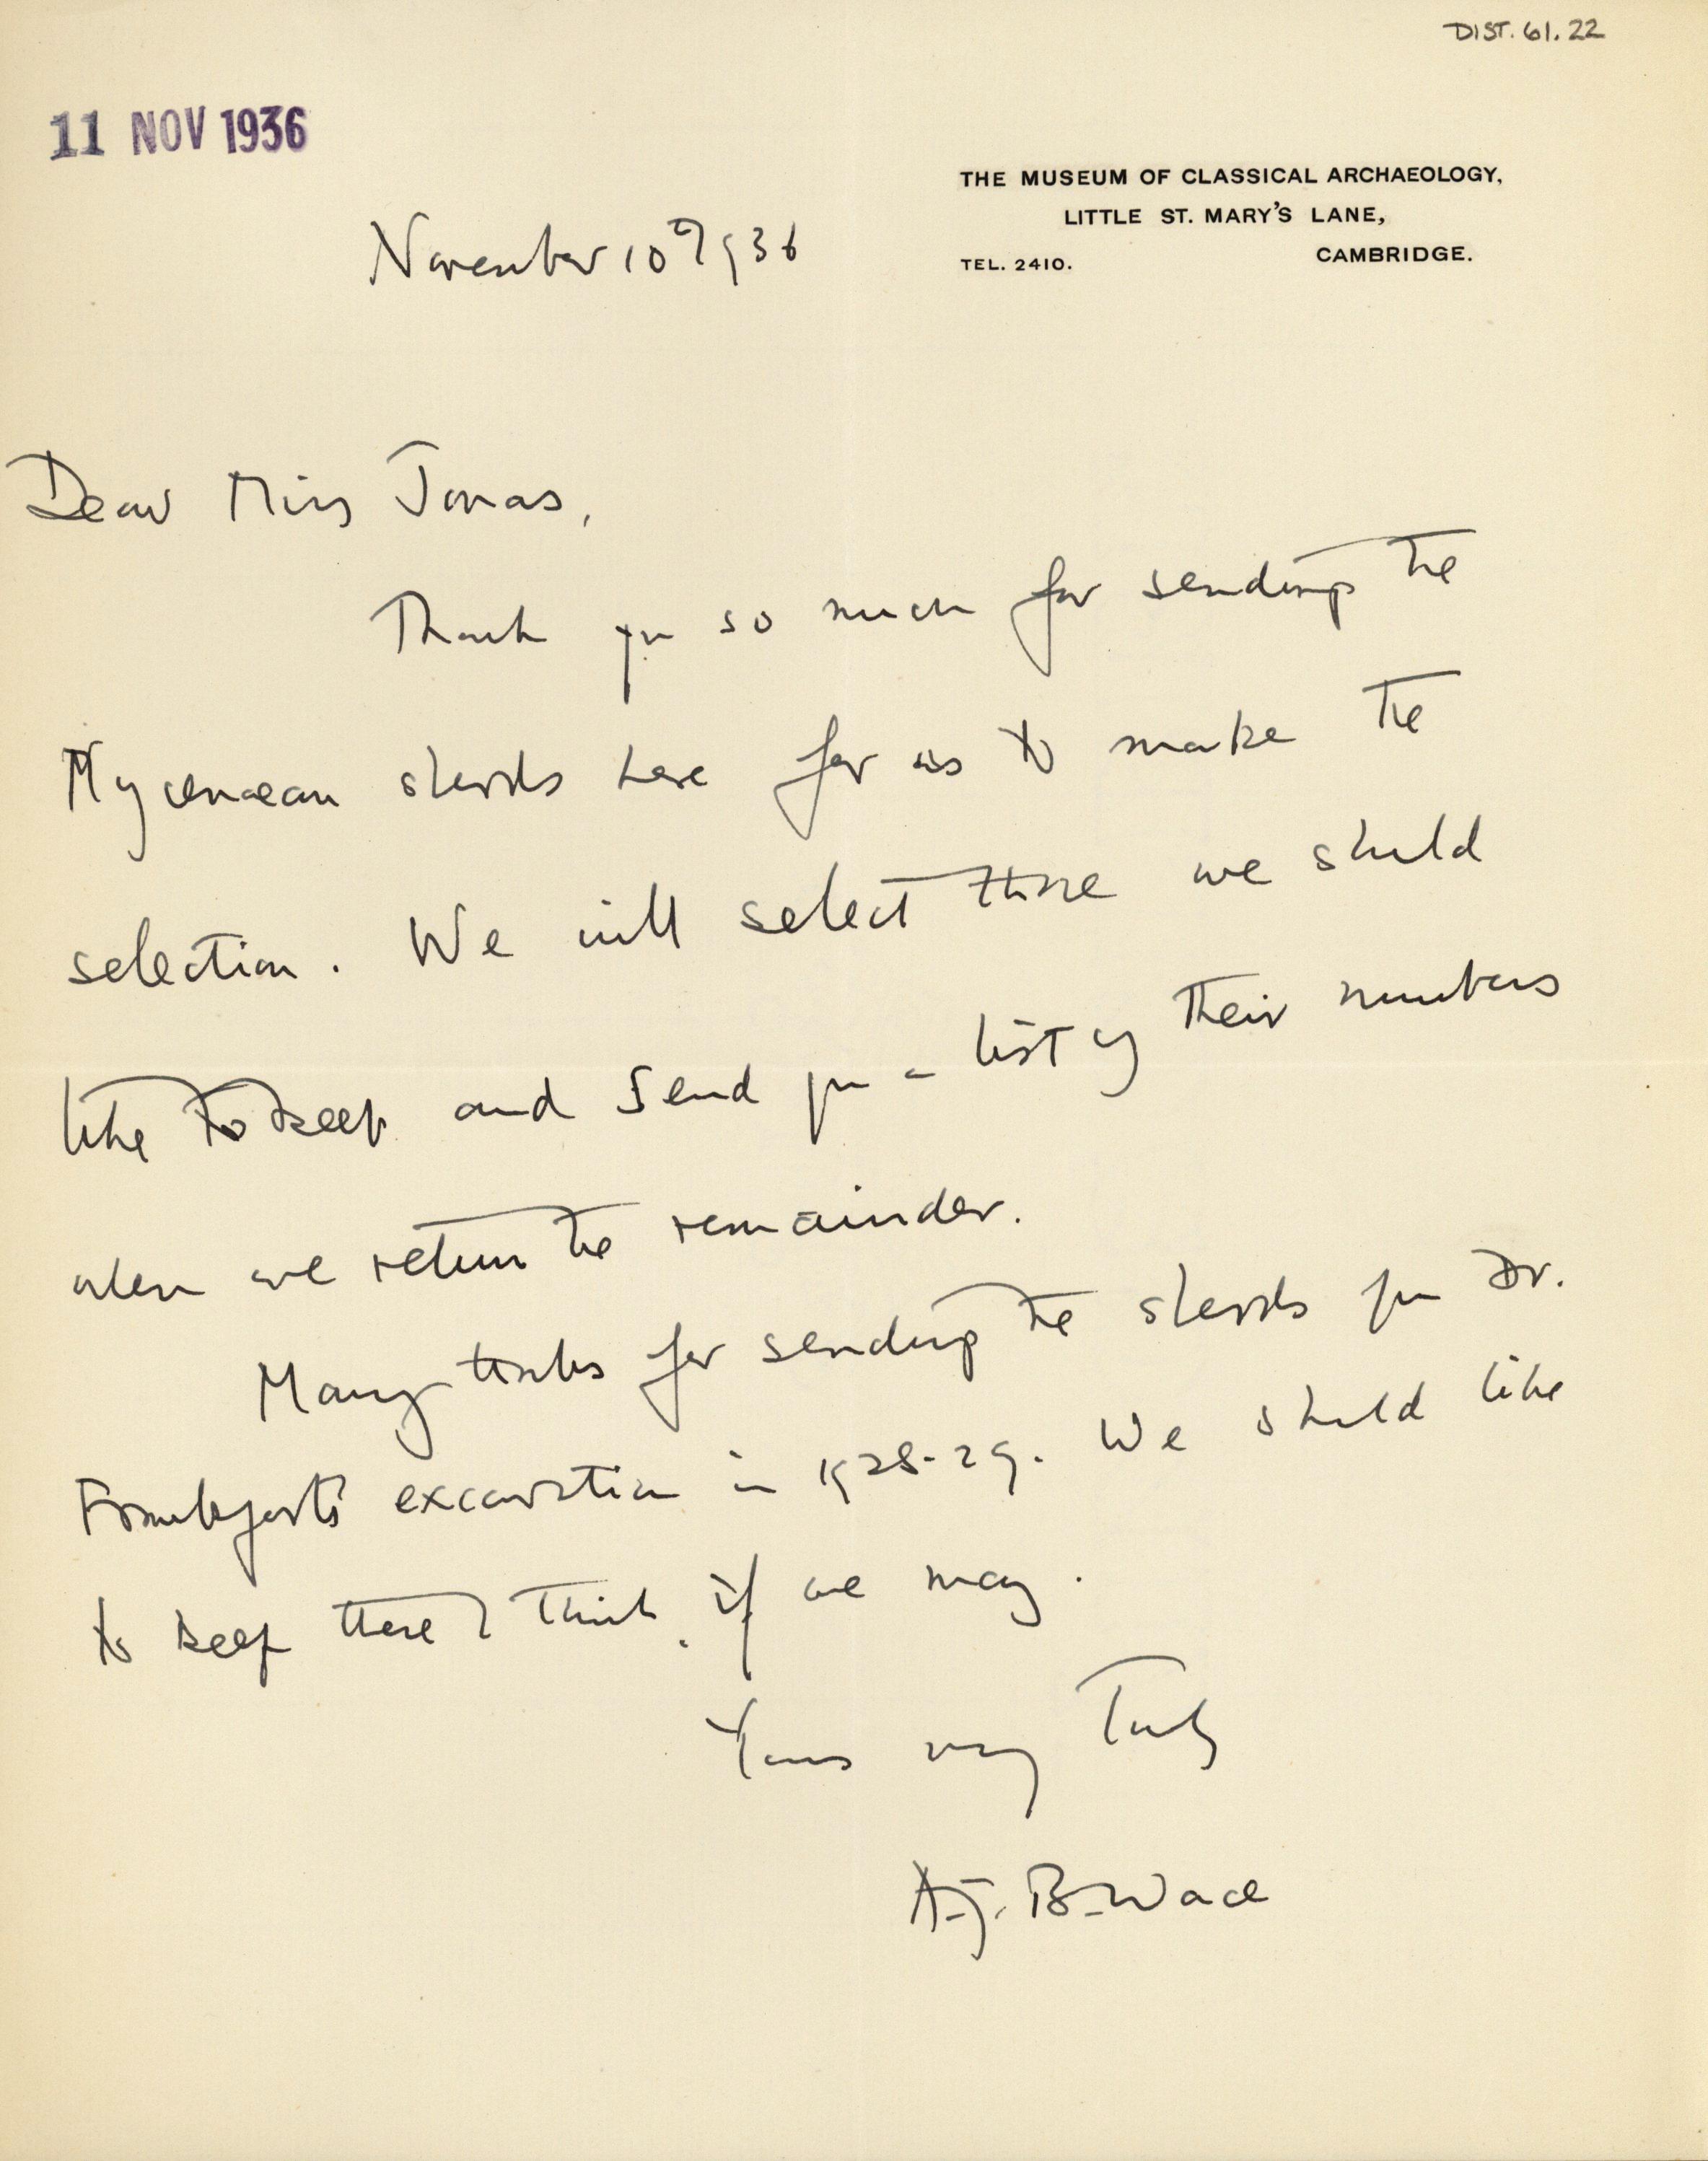 DIST. 61. 22
11 NOV 1936
THE MUSEUM OF CLASSICAL ARCHAEOLOGY,
LITTLE ST. MARY'S LANE,
TEL. 2410. CAMBRIDGE.
November 10th 1936
Dear Miss Jonas,
Thank you so much for sending the
Mycenaean sherds here for us to make the
selection. We will select those we should
like to keep and send you a list of their numbers
when we return the remainder.
Many thanks for sending the sherds from Dr.
Frankfort's excavation in 1928-29. We should like
to keep these I think, if we may.
Yours very truly
A.J.B. Wace